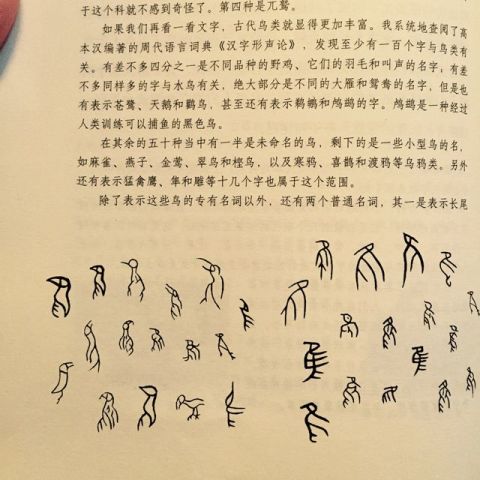 于这个科就不感到奇怪了。第四种是兀鹫。
如果我们再看一看文字，古代鸟类就显得更加丰富。我系统地查阅了高
本汉编著的周代语言词典《汉字形声论》，发现至少有一百个字与鸟类有
关。有差不多四分之一是不同品种的野鸡、它们的羽毛和叫声的名字；有差
不多同样多的字与水鸟有关，绝大部分是不同的大雁和鸳鸯的名字，但是也
有表示苍鹭、天鹅和鹳鸟，甚至还有表示鹈鹕和鸬鹚的字。鸬鹚是一种经过
人类训练可以捕鱼的黑色鸟。
在其余的五十种当中有一半是未命名的鸟，剩下的是一些小型鸟的名，
如麻雀、燕子、金莺、翠鸟和桎鸟，以及寒鸦、喜鹊和渡鸦等乌鸦类。另外
还有表示猛禽鹰、隼和雕等十几个字也属于这个范围。
除了表示这些鸟的专有名词以外，还有两个普通名词，其一是表示长尾